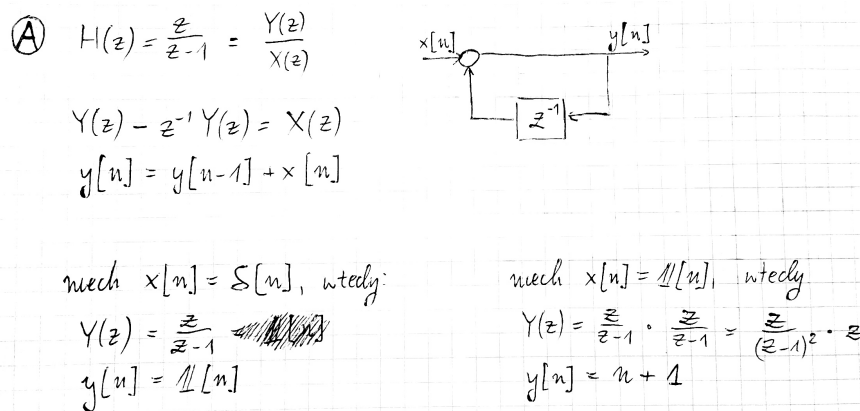 Ⓐ H(z) = z/(z-1) = Y(z)/X(z)
x[n] y[n]
z⁻¹
Y(z) - z⁻¹ Y(z) = X(z)
y[n] = y[n-1] + x[n]
niech x[n] = δ[n], wtedy:
Y(z) = z/(z-1)
y[n] = 𝟙[n]
niech x[n] = 𝟙[n], wtedy
Y(z) = z/(z-1) · z/(z-1) = z/(z-1)² · z
y[n] = n + 1